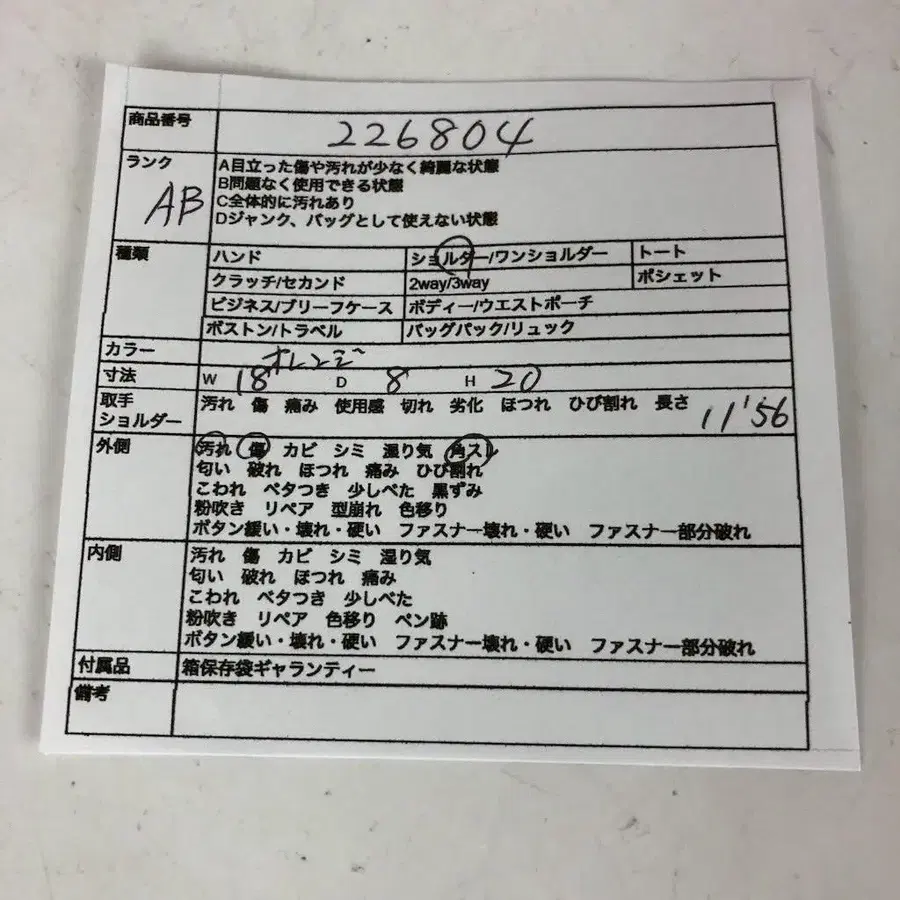 商品番号 226804
ランク AB A目立った傷や汚れが少なく綺麗な状態
B問題なく使用できる状態
C全体的に汚れあり
Dジャンク、バッグとして使えない状態
種類 ハンド ショルダー/ワンショルダー トート
クラッチ/セカンド 2way/3way ポシェット
ビジネス/ブリーフケース ボディー/ウエストポーチ
ボストン/トラベル バッグパック/リュック
カラー オレンジ
寸法 W 18 D 8 H 20
取手 汚れ 傷 痛み 使用感 切れ 劣化 ほつれ ひび割れ 長さ 11'56
ショルダー
外側 汚れ 傷 カビ シミ 湿り気 角スレ
匂い 破れ ほつれ 痛み ひび割れ
こわれ ベタつき 少しべた 黒ずみ
粉吹き リペア 型崩れ 色移り
ボタン緩い・壊れ・硬い ファスナー壊れ・硬い ファスナー部分破れ
内側 汚れ 傷 カビ シミ 湿り気
匂い 破れ ほつれ 痛み
こわれ ベタつき 少しべた
粉吹き リペア 色移り ペン跡
ボタン緩い・壊れ・硬い ファスナー壊れ・硬い ファスナー部分破れ
付属品 箱保存袋ギャランティー
備考